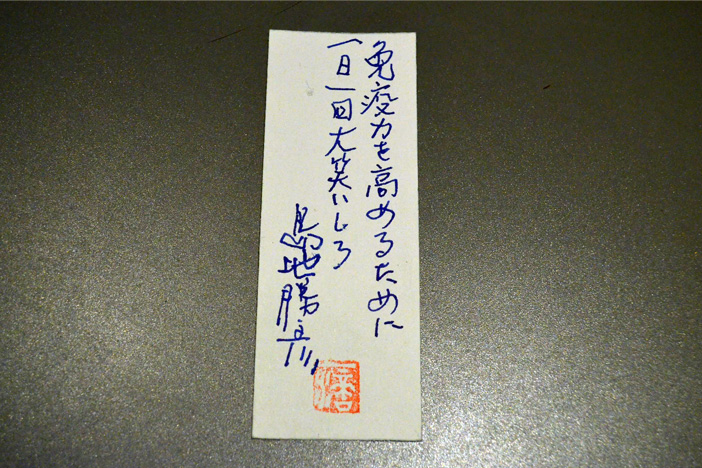 免疫力を高めるために
一日一回大笑いしろ